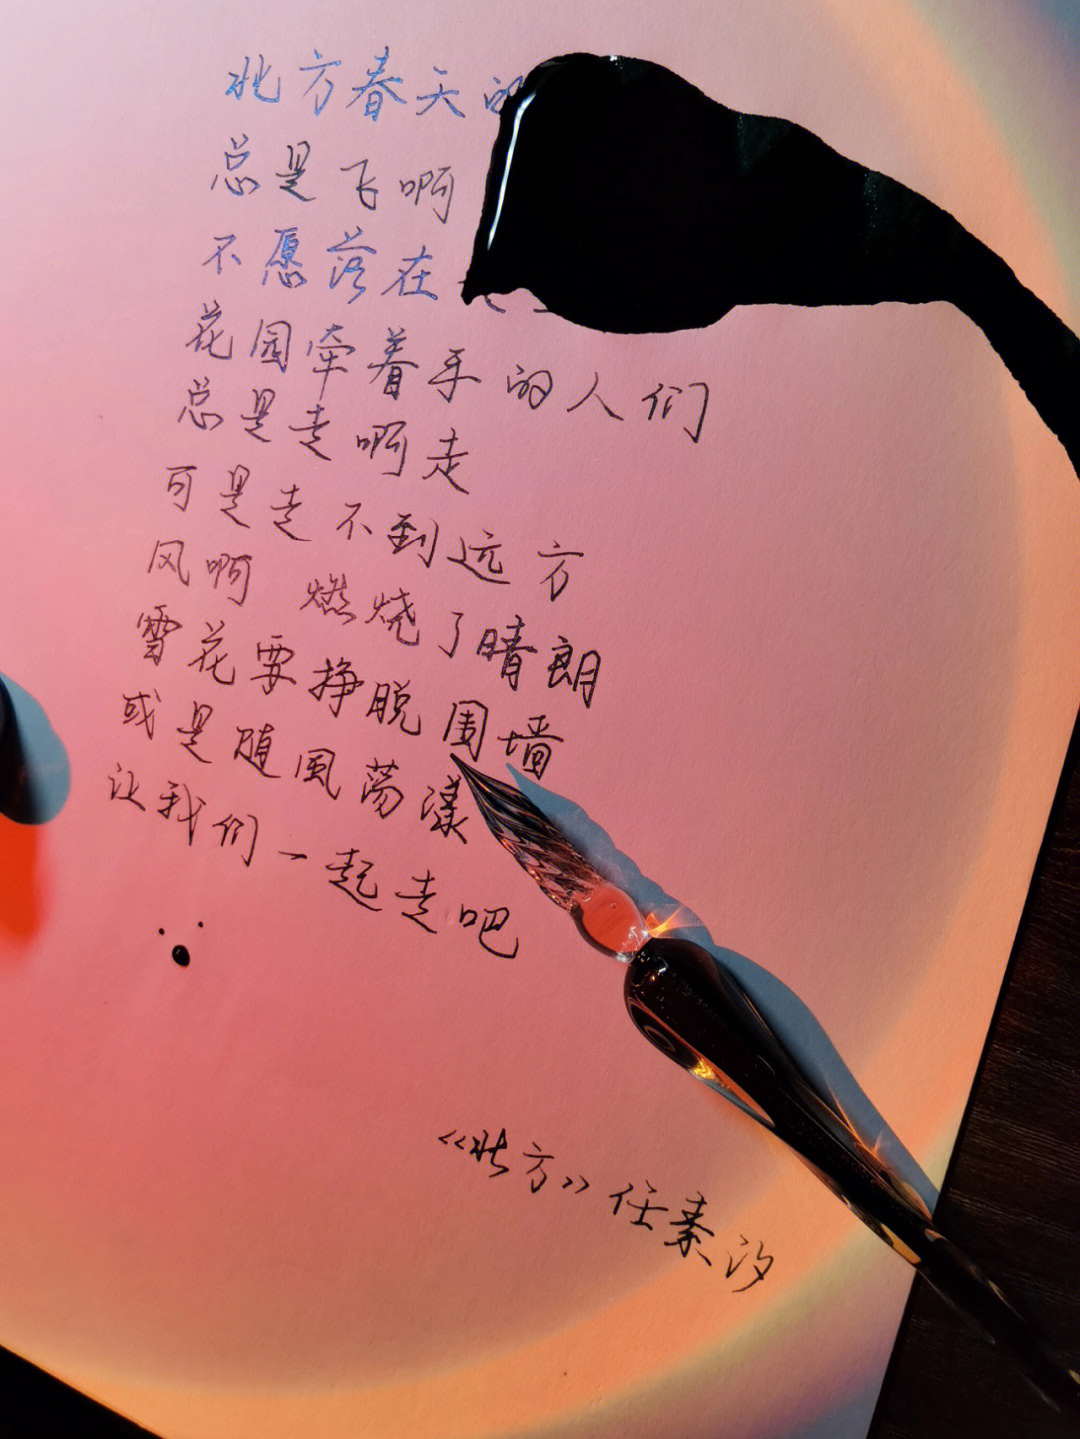 北方春天的
总是飞啊
不愿落在
花园牵着手的人们
总是走啊走
可是走不到远方
风啊 燃烧了晴朗
雪花要挣脱围墙
或是随風荡漾
让我们一起走吧
《北方》任素汐